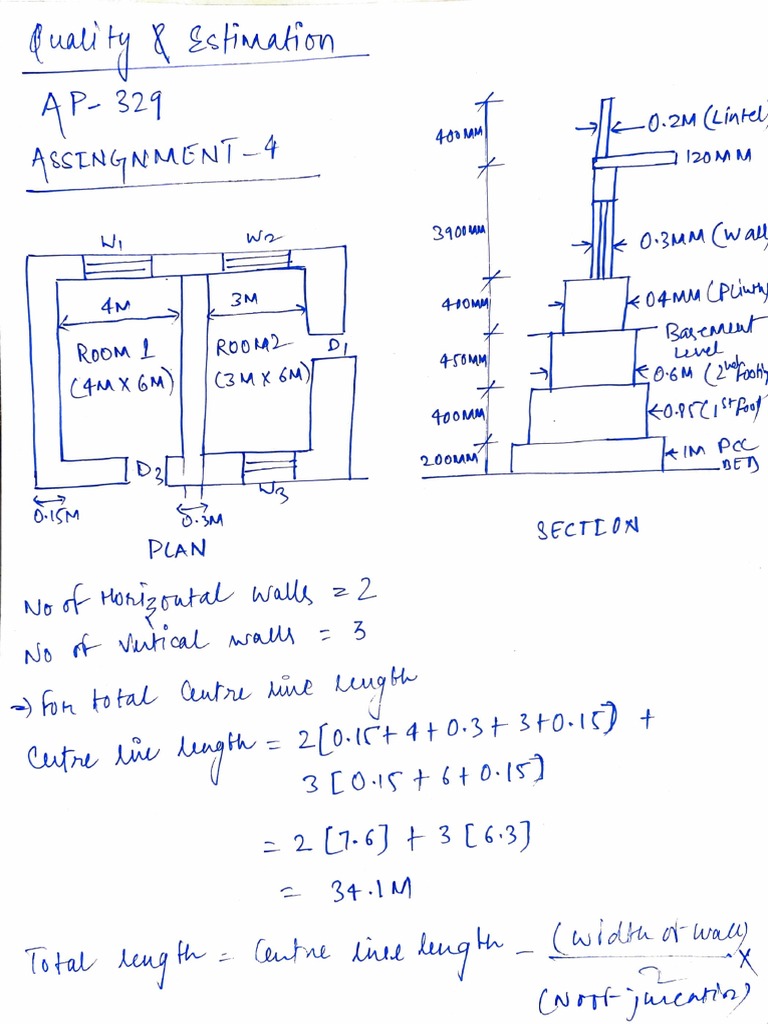 Quality & Estimation
AP- 329
ASSINGNMENT-4
W1
W2
4M
3M
ROOM 1
(4M X 6M)
ROOM2
(3M X 6M)
D1
D2
W3
0.15M
0.3M
PLAN
400MM
0.2M (Lintel
120MM
3900MM
0.3MM (Wall
400MM
04MM (Plinth)
Basement
Level
450MM
0.6M (2nd Footing
400MM
0.85 (1st Foot
200MM
1M PCC
BED
SECTION
No of Horizontal walls = 2
No of Vertical walls = 3
=> For total Centre line length
Centre line length = 2[0.15+4+0.3+3+0.15] +
3[0.15+6+0.15]
= 2 [7.6] + 3 [6.3]
= 34.1M
Total length = Centre line length - (width of wall)
2
X
(No of junction)